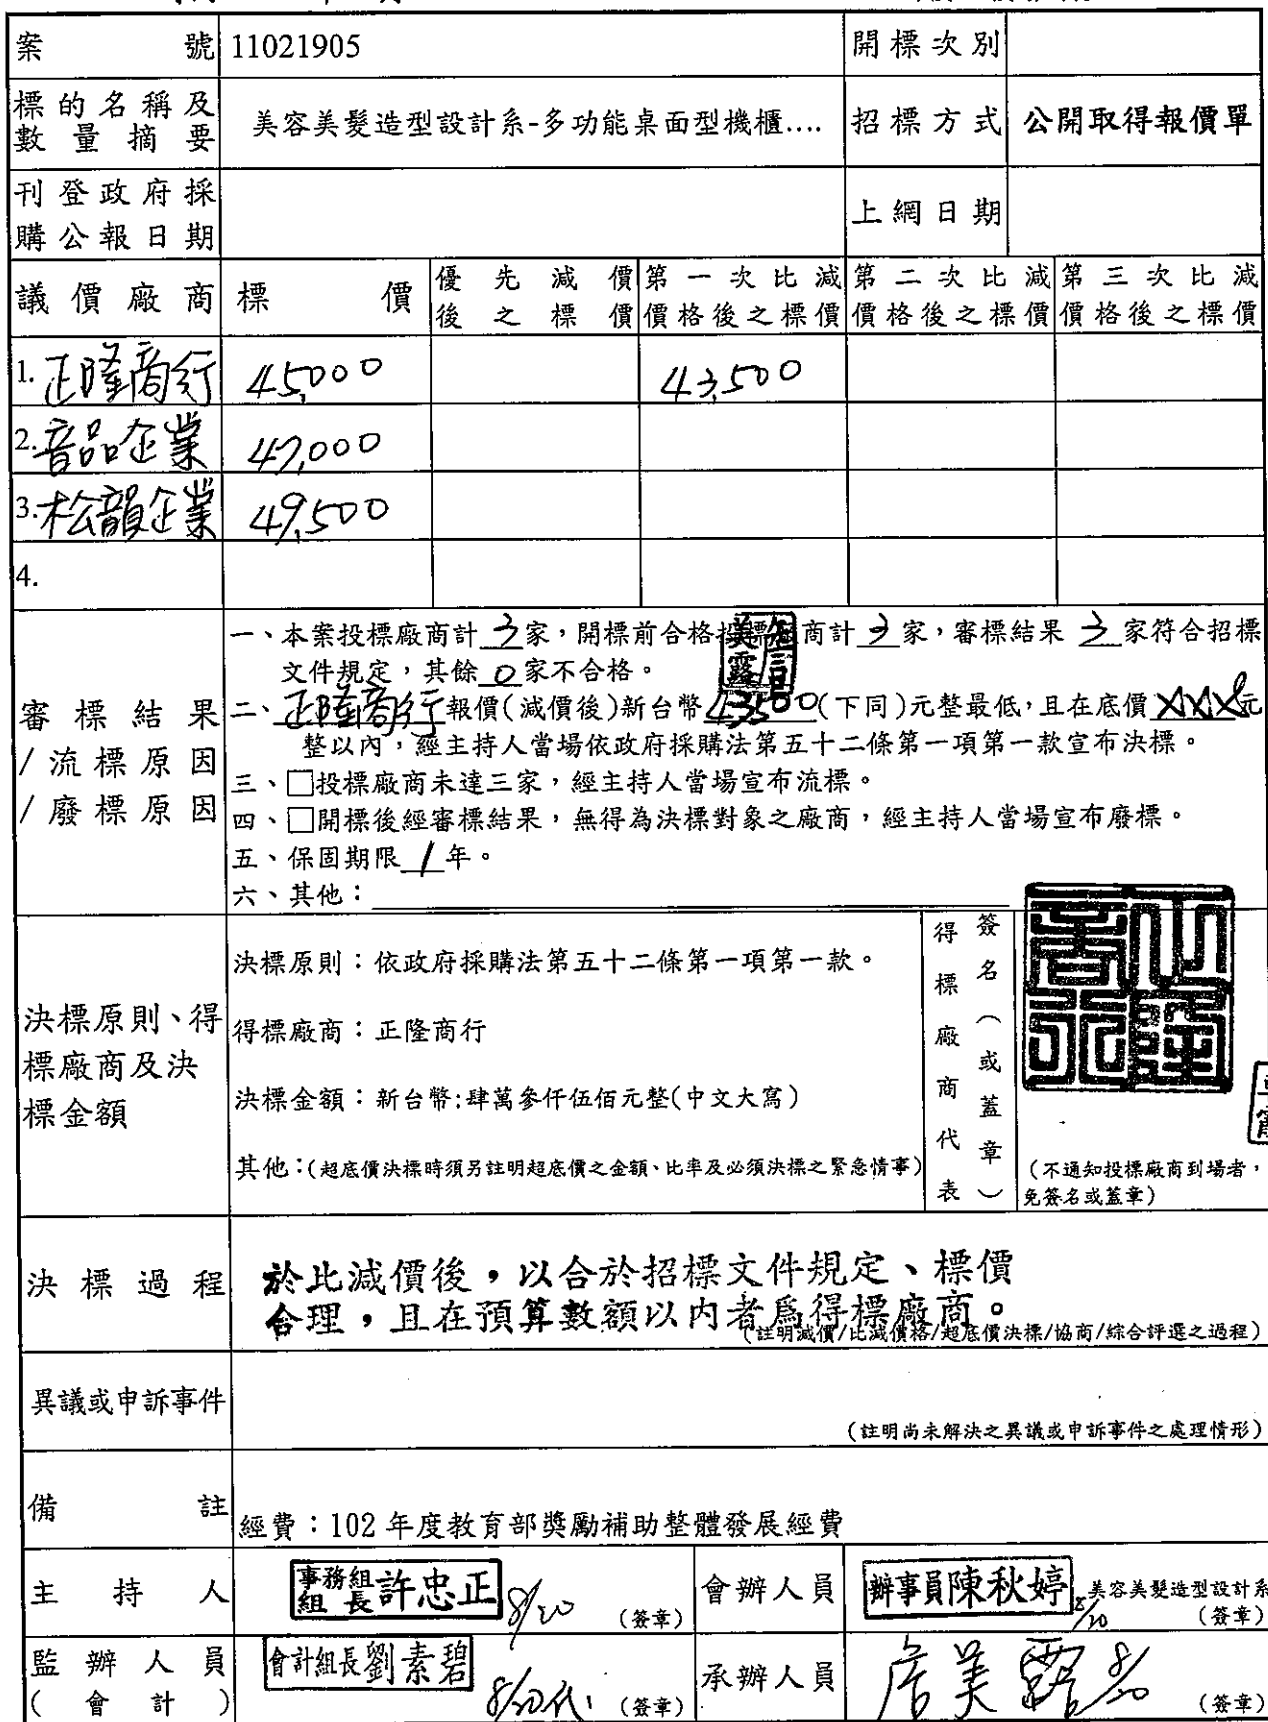 案號 11021905 開標次別
標的名稱及數量摘要 美容美髮造型設計系-多功能桌面型機櫃.... 招標方式 公開取得報價單
刊登政府採購公報日期 上網日期
議價廠商 標價 優先減價後之標價 第一次比減價格後之標價 第二次比減價格後之標價 第三次比減價格後之標價
1.正隆商行 45,000 43,500
2.音品企業 47,000
3.松韻企業 49,500
4.
審標結果/流標原因/廢標原因
一、本案投標廠商計3家，開標前合格投標廠商計3家，審標結果3家符合招標
文件規定，其餘0家不合格。
二、正隆商行報價(減價後)新台幣43500(下同)元整最低，且在底價XXX元
整以內，經主持人當場依政府採購法第五十二條第一項第一款宣布決標。
三、□投標廠商未達三家，經主持人當場宣布流標。
四、□開標後經審標結果，無得為決標對象之廠商，經主持人當場宣布廢標。
五、保固期限1年。
六、其他：
決標原則、得標廠商及決標金額
決標原則：依政府採購法第五十二條第一項第一款。
得標廠商：正隆商行
決標金額：新台幣:肆萬參仟伍佰元整(中文大寫)
其他：(超底價決標時須另註明超底價之金額、比率及必須決標之緊急情事)
得標廠商代表
簽名（或蓋章）
正隆商行
(不通知投標廠商到場者，
免簽名或蓋章)
決標過程
於比減價後，以合於招標文件規定、標價
合理，且在預算數額以內者為得標廠商。
(註明減價/比減價格/超底價決標/協商/綜合評選之過程)
異議或申訴事件
(註明尚未解決之異議或申訴事件之處理情形)
備註 經費：102 年度教育部獎勵補助整體發展經費
主持人 事務組組長許忠正 8/20 (簽章) 會辦人員 辦事員陳秋婷 8/20 美容美髮造型設計系 (簽章)
監辦人員(會計) 會計組長劉素碧 8/20代 (簽章) 承辦人員 詹美露 8/20 (簽章)